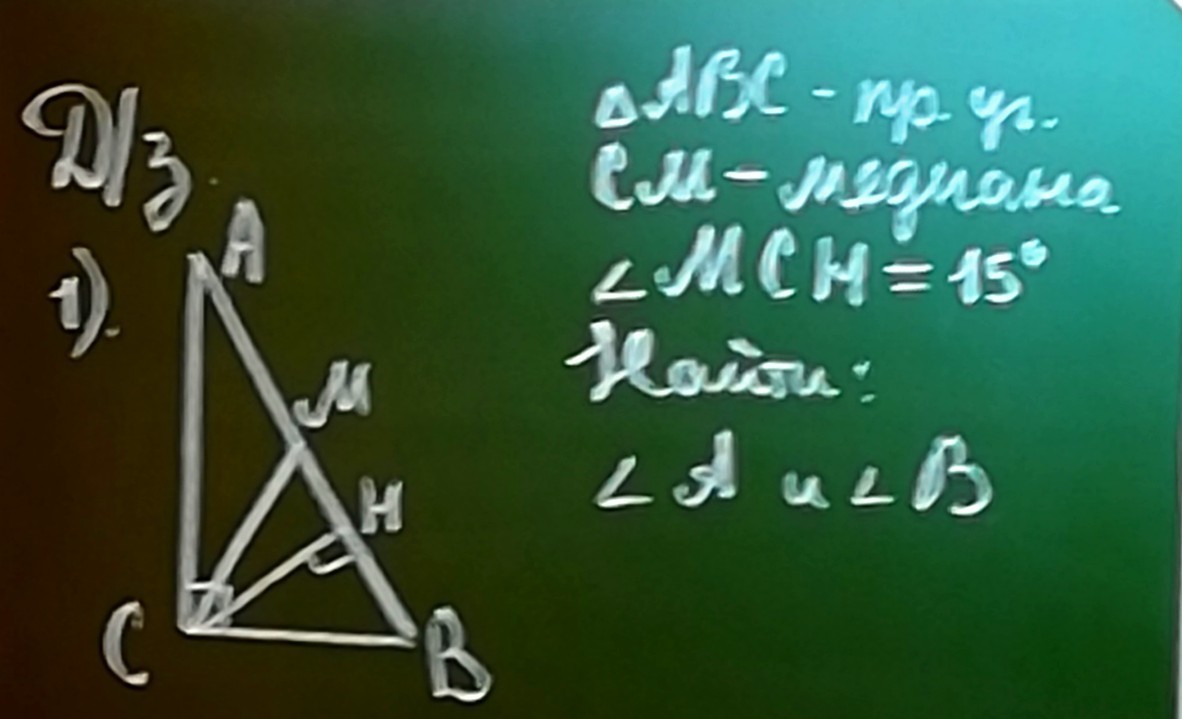 Д/з.
1).
A
M
H
C
B
△ABC - пр. уг.
CM - медиана
∠MCH = 15°
Найти:
∠A и ∠B